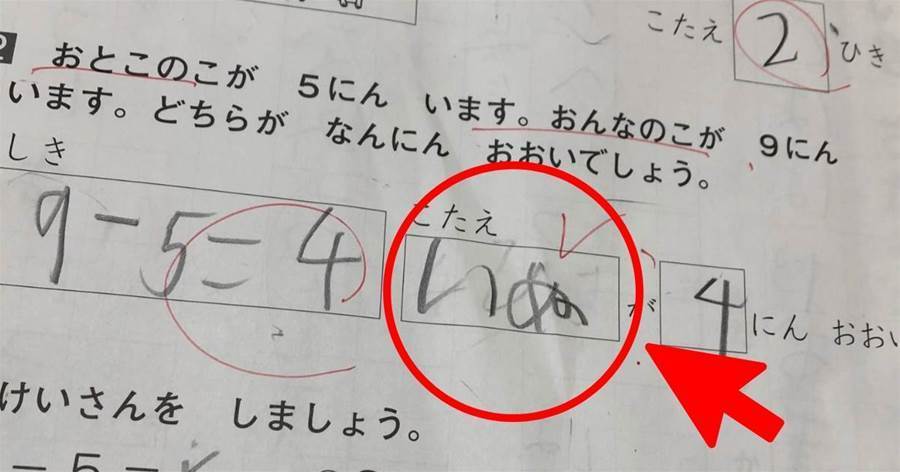 こたえ 2 ひき
おとこのこが 5にん います。おんなのこが 9にん
います。どちらが なんにん おおいでしょう。
しき
9-5=4
こたえ
いぬ が 4 にん おおい
けいさんを しましょう。